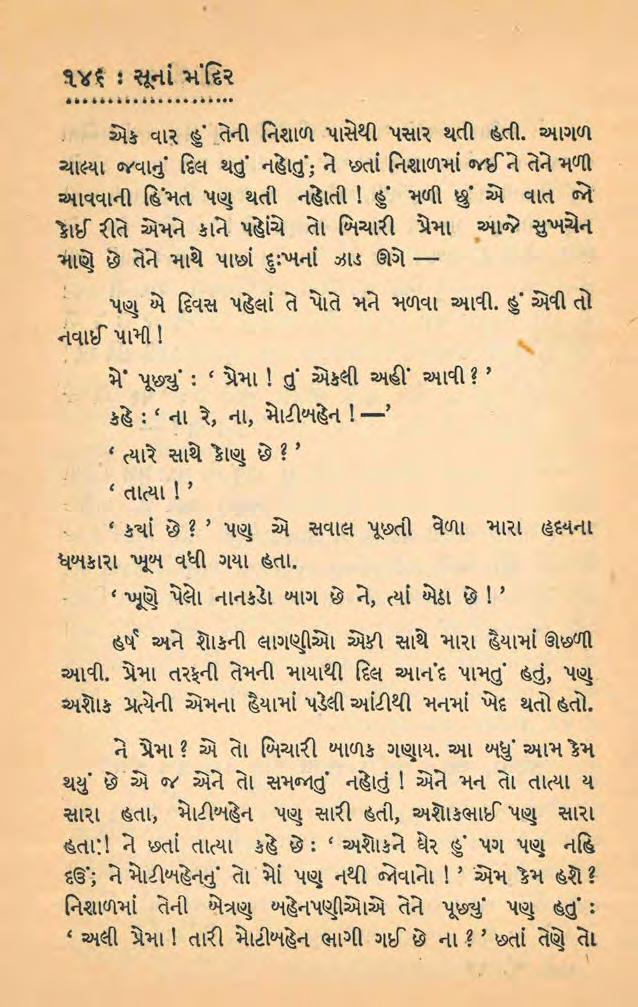 ૧૪૬ : સૂનાં મંદિર
એક વાર હું તેની નિશાળ પાસેથી પસાર થતી હતી. આગળ
ચાલ્યા જવાનું દિલ થતું નહોતું; ને છતાં નિશાળમાં જઈને તેને મળી
આવવાની હિંમત પણ થતી નહોતી ! હું મળી છું એ વાત જો
કોઈ રીતે એમને કાને પહોંચે તો બિચારી પ્રેમા આજે સુખચેન
માણે છે તેને માથે પાછાં દુઃખનાં ઝાડ ઊગે —
પણ બે દિવસ પહેલાં તે પોતે મને મળવા આવી. હું એવી તો
નવાઈ પામી !
મેં પૂછ્યું : ‘ પ્રેમા ! તું એકલી અહીં આવી ? ’
કહે : ‘ ના રે, ના, મોટીબહેન ! —’
‘ ત્યારે સાથે કોણ છે ? ’
‘ તાત્યા ! ’
‘ ક્યાં છે ? ’ પણ એ સવાલ પૂછતી વેળા મારા હૃદયના
ધબકારા ખૂબ વધી ગયા હતા.
‘ ખૂણે પેલો નાનકડો બાગ છે ને, ત્યાં બેઠા છે ! ’
હર્ષ અને શોકની લાગણીઓ એકી સાથે મારા હૈયામાં ઊછળી
આવી. પ્રેમા તરફની તેમની માયાથી દિલ આનંદ પામતું હતું, પણ
અશોક પ્રત્યેની એમના હૈયામાં પડેલી આંટીથી મનમાં ખેદ થતો હતો.
ને પ્રેમા ? એ તો બિચારી બાળક ગણાય. આ બધું આમ કેમ
થયું છે એ જ એને તો સમજાતું નહોતું ! એને મન તો તાત્યા ય
સારા હતા, મોટીબહેન પણ સારી હતી, અશોકભાઈ પણ સારા
હતા! ને છતાં તાત્યા કહે છે : ‘ અશોકને ઘેર હું પગ પણ નહિ
દઉં; ને મોટીબહેનનું તો મોં પણ નથી જોવાનો ! ’ એમ કેમ હશે ?
નિશાળમાં તેની બેત્રણ બહેનપણીઓએ તેને પૂછ્યું પણ હતું :
‘ અલી પ્રેમા ! તારી મોટીબહેન ભાગી ગઈ છે ના ? ’ છતાં તેણે તો